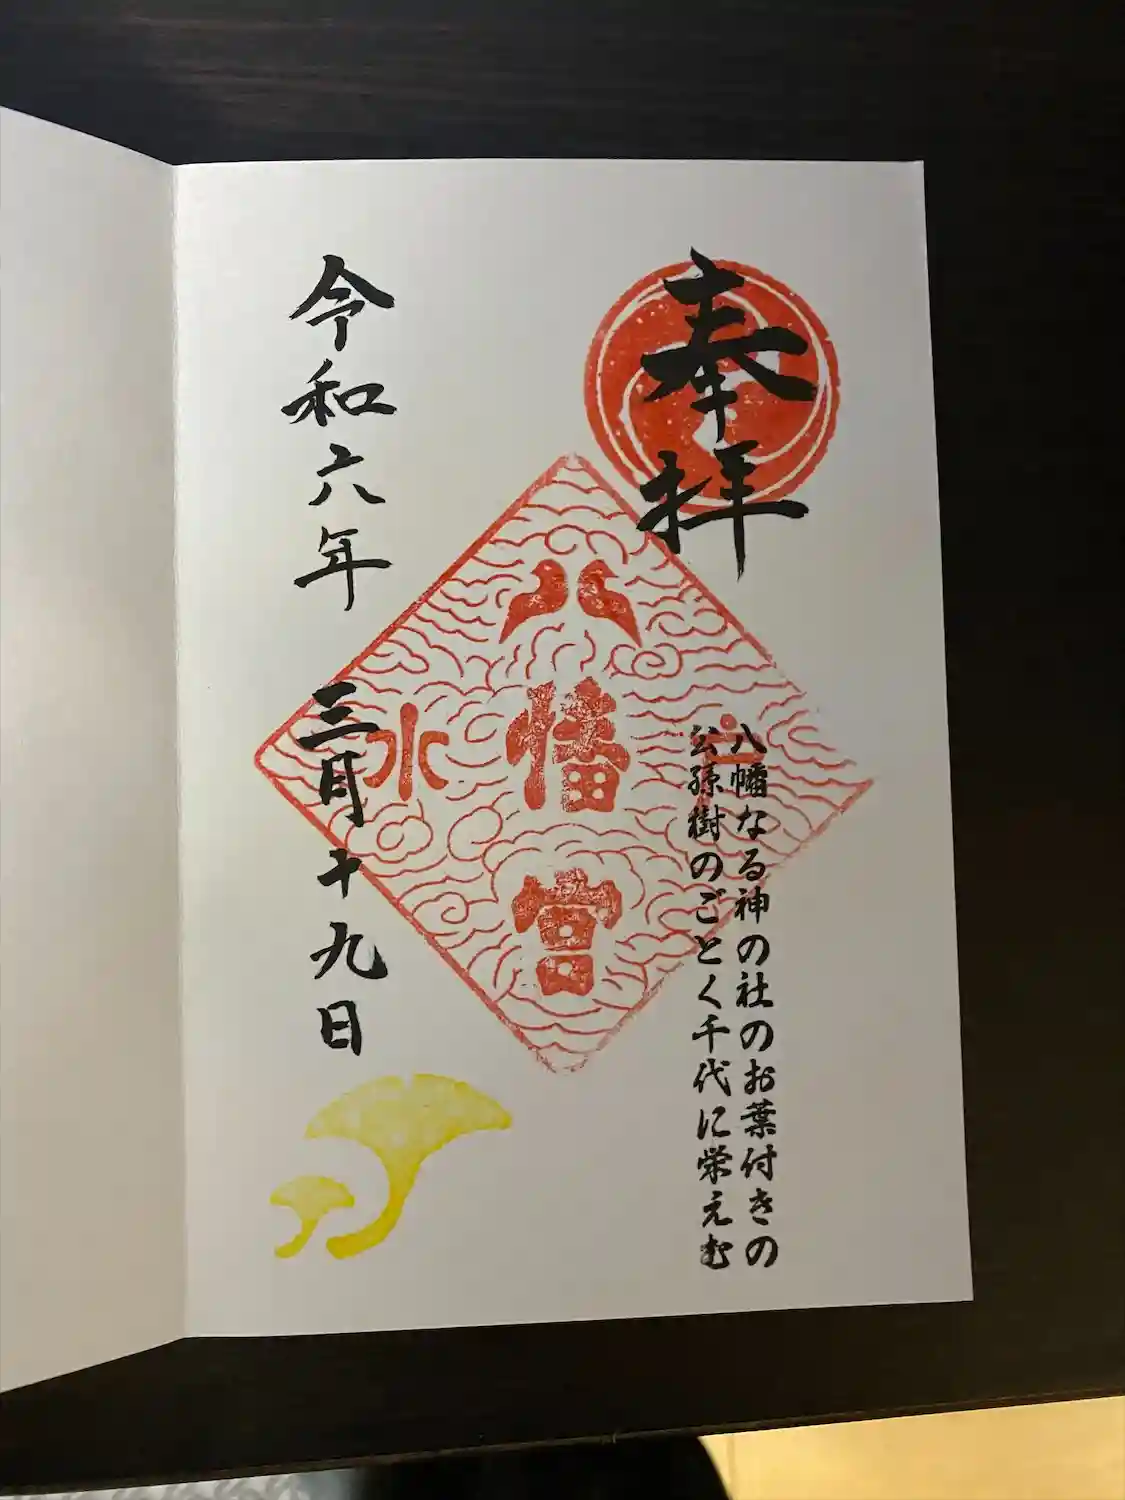 奉拝
八幡なる神の社のお葉付きの
公孫樹のごとく千代に栄えむ
水戸
八幡宮
令和六年 三月十九日